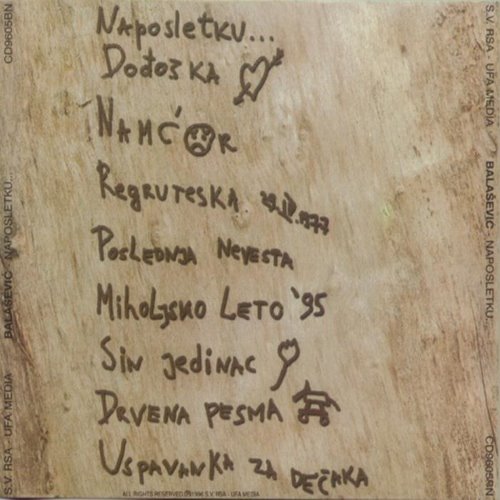 Naposletku...
Dođoška
Namćor
Regruteska 29.IV.1977
Poslednja nevesta
Miholjsko leto '95
Sin jedinac
Drvena pesma
Uspavanka za dečaka
ALL RIGHTS RESERVED S.V. RSA - UFA MEDIA
S.V. RSA - UFA MEDIA BALAŠEVIĆ - NAPOSLETKU... CD9605BN
S.V. RSA - UFA MEDIA BALAŠEVIĆ - NAPOSLETKU... CD9605BN